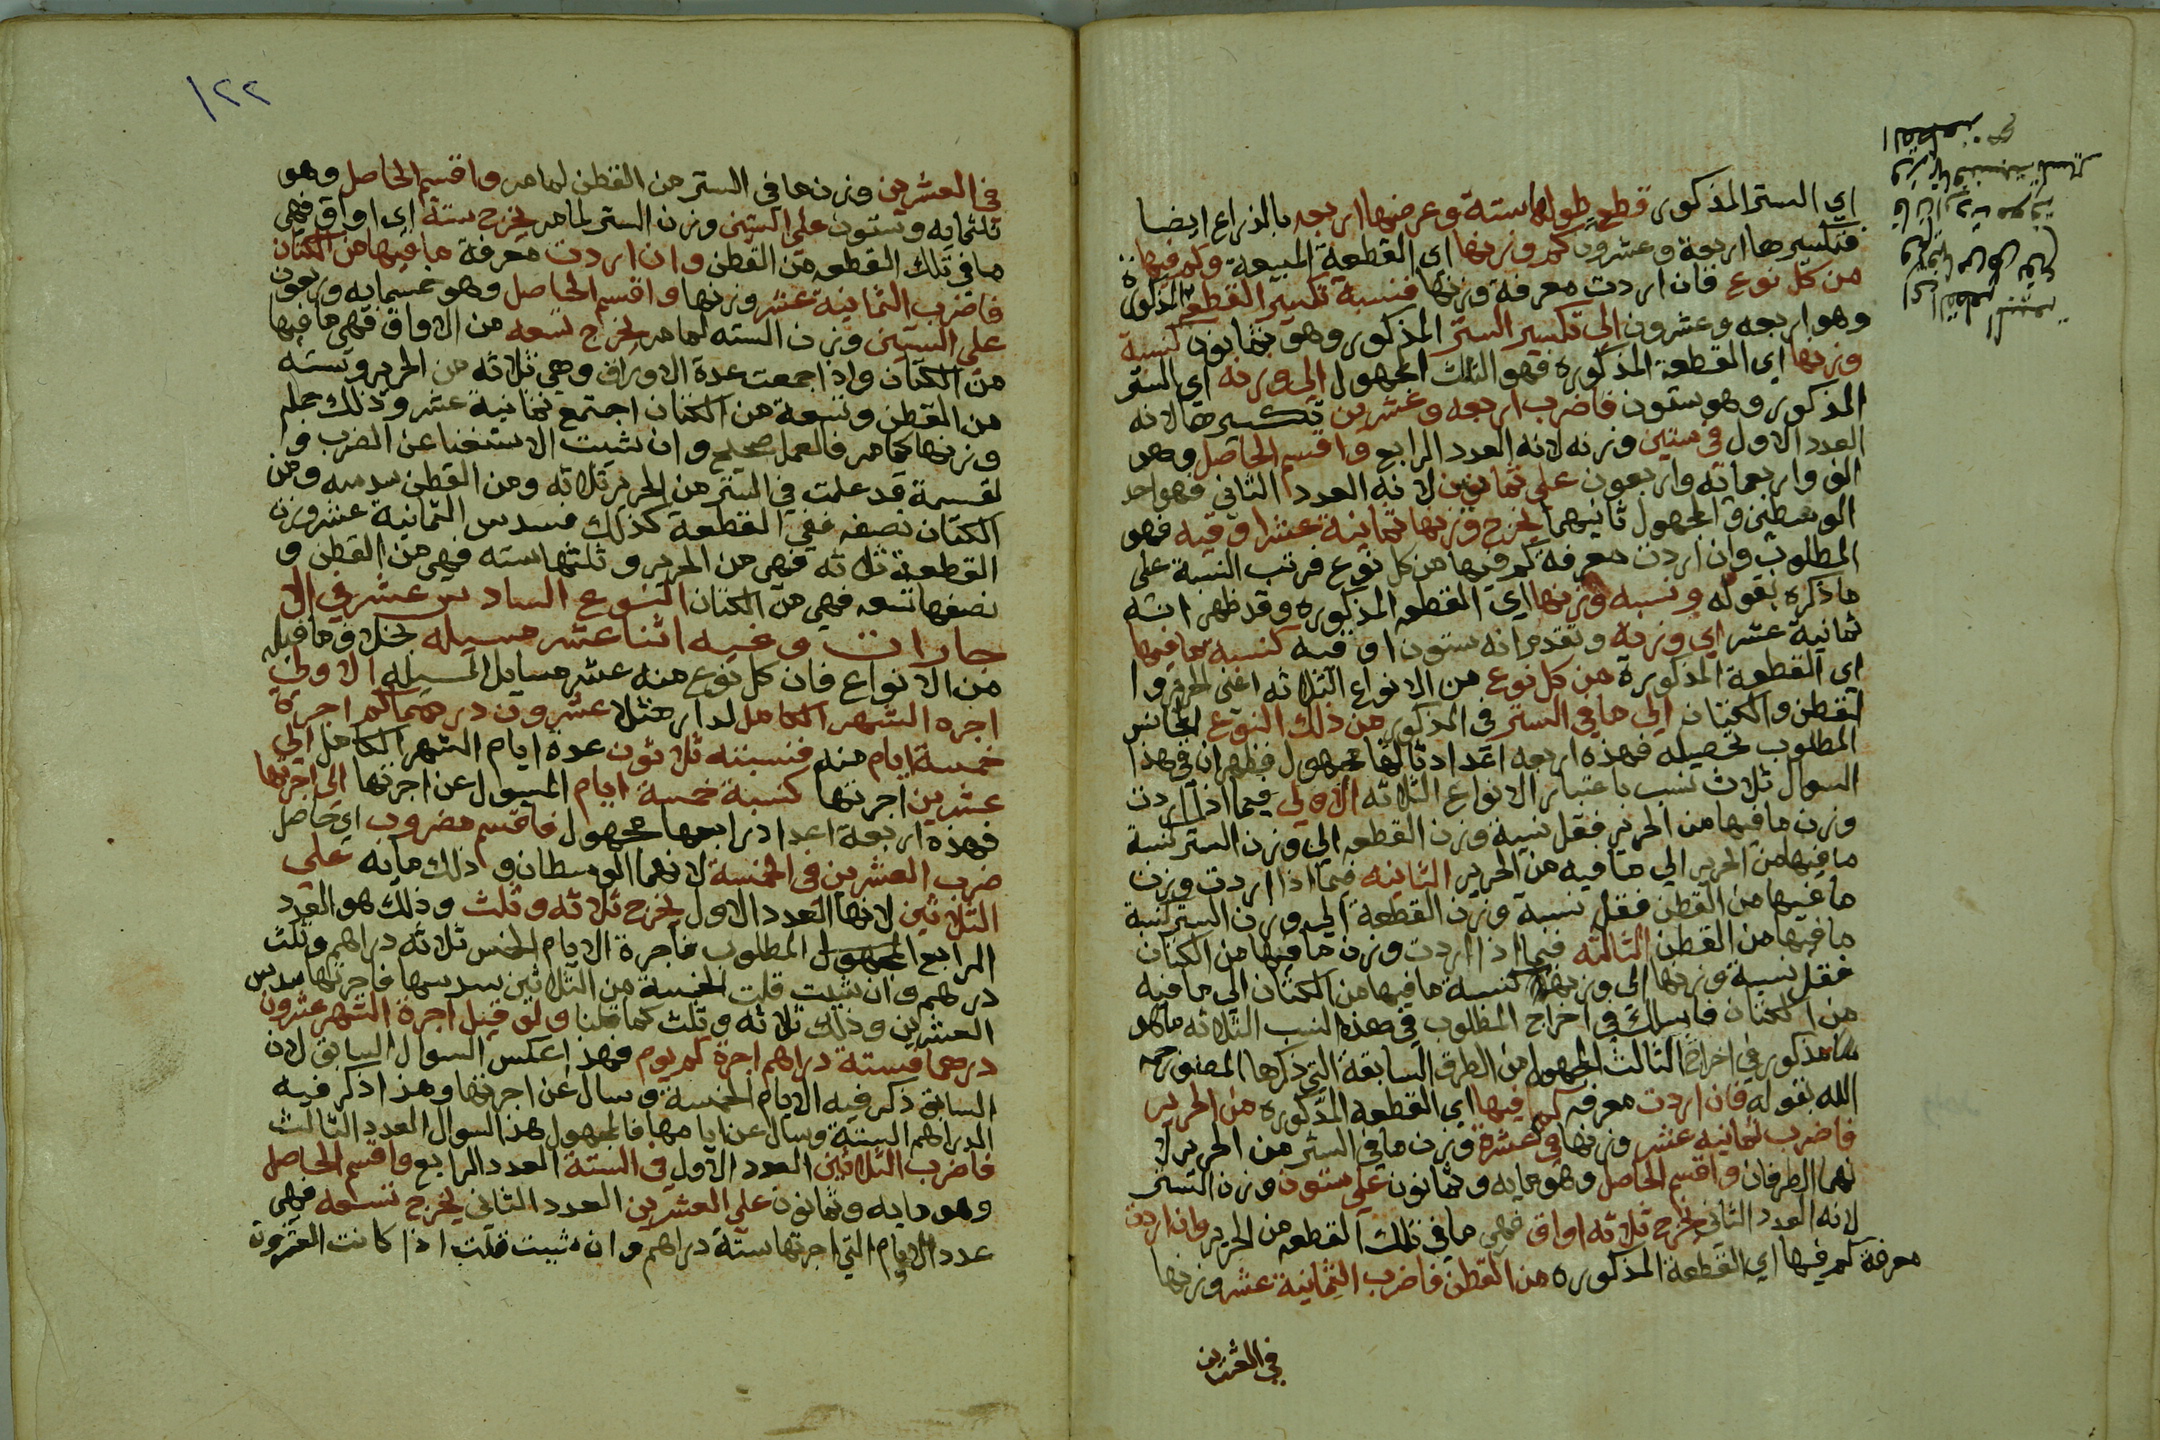 اي الستر المذكور قطعة طولها ستة وعرضها اربعه بالذراع ايضا
فتكسيرها اربعة وعشرون كم وزنها اي القطعة المبيعة وكم فيها
من كل نوع فان اردت معرفة وزنها فنسبة تكسير القطعة المذكورة
وهو اربعه وعشرون الى تكسير الستر المذكور وهو ثمانون كنسبة
وزنها اي القطعة المذكوره فهو الثالث المجهول الى وزنه اي الستر
المذكور وهو ستون فاضرب اربعه وعشرين تكسيرها لانه
العدد الاول في ستين وزنه لانه العدد الرابع واقسم الحاصل وهو
الف واربعمائة واربعون على ثمانين لانه العدد الثاني فهو احد
الوسطين والمجهول ثانيهما يخرج وزنها ثمانية عشر اوقيه فهو
المطلوب وان اردت معرفة كم فيها من كل نوع فرتب النسبة على
ما ذكره بقوله ونسبه وزنها اي القطعه المذكوره وقد ظهر انه
ثمانية عشر اي وزنه وتقدم انه ستون اوقيه كنسبه ما فيها
اي القطعة المذكورة من كل نوع من الانواع الثلاثه اعني الحرير وا
لقطن والكتان الي ما في الستر في المذكور من ذلك النوع المجانس
المطلوب تحصيله فهذه اربعه اعداد ثالثها مجهول فظهر ان في هذا
السوال ثلاث نسب باعتبار الانواع الثلاثه الاولى فيما اذا اردت
وزن ما فيها من الحرير فقل نسبة وزن القطعه الي وزن الستر كنسبة
ما فيها من الحرير الي ما فيه من الحرير الثانيه فيما اذا اردت وزن
ما فيها من القطن فقل نسبة وزن القطعة الي وزن الستر كنسبة
ما فيها من القطن الثالثه فيما اذا اردت وزن ما فيها من الكتان
فقل نسبة وزنها الي وزنه كنسبة ما فيها من الكتان الي ما فيه
من الكتان فاسلك في اخراج المطلوب في هذه النسب الثلاثه ما هو
مذكور في اخراج الثالث المجهول من الطرق السابقة التي ذكرها المصنف رحمه
الله بقوله فان اردت معرفه كم فيها اي القطعة المذكوره من الحرير
فاضرب ثمانيه عشر وزنها في عشرة وزن ما في الستر من الحرير لا
نهما الطرفان واقسم الحاصل وهو مايه وثمانون على ستون وزن الستر
لانه العدد الثاني يخرج ثلاثه اواق فهي ما في تلك القطعه من الحرير وان اردت
معرفة كم فيها اي القطعة المذكوره من القطن فاضرب الثمانية عشر وزنها
في العشرين
١٢٢
في العشرين وزن ما في الستر من القطن لما مر واقسم الحاصل وهو
ثلثمايه وستون على الستين وزن الستر لما مر يخرج ستة اي اواق فهي
ما في تلك القطعه من القطن وان اردت معرفة ما فيها من الكتان
فاضرب الثمانية عشر وزنها واقسم الحاصل وهو خمسمايه وربعون
على الستين وزن السته لما مر يخرج تسعه من الاواق فهي ما فيها
من الكتان واذا جمعت عدة الاوراق وهي ثلاثه من الحرير وسته
من القطن وتسعة من الكتان اجتمع ثمانية عشر وذلك جملة
وزنها كما مر فالعمل صحيح وان شيت الاستغنا عن الضرب وا
لقسمة فقد علمت في الستر من الحرير ثلاثه ومن القطن سدسه ومن
الكتان نصفه ففي القطعة كذلك فسدس الثمانية عشر وزن
القطعة ثلاثه فهي من الحرير وثلثها سته فهي من القطن و
نصفها تسعه فهي من الكتان النوع السادس عشر في الا
جارات وفيه اثنا عشر مسيله بخلاف ما قبله
من الانواع فان كل نوع منه عشر مسايل المسيله الاولى
اجره الشهر الكامل لدار مثلا عشرون درهما كم اجرة
خمسة ايام منه فنسبته ثلاثون عدة ايام الشهر الكامل الي
عشرين اجرتها كنسبة خمسة ايام المسول عن اجرتها الى اجرتها
فهذه اربعة اعداد رابعها مجهول فاقسم مضروب اي حاصل
ضرب العشرين في الخمسة لانهما الوسطان وذلك مايه على
الثلاثين لانها العدد الاول يخرج ثلاثه وثلث وذلك هو العدد
الرابع المجهول المطلوب فاجرة الايام الخمس ثلاثه دراهم وثلث
درهم وان شيت قلت الخمسة من الثلاثين سدسها فاجرتها سدس
العشرين وذلك ثلاثه وثلث كما قلنا ولو قيل اجرة الشهر عشرون
درهما فستة دراهم اجرة كم يوم فهذا عكس السوال السابق لان
السابق ذكر فيه الايام الخمسة وسال عن اجرتها وهذا ذكر فيه
الدراهم الستة وسال عن ايامها فالمجهول هذا السوال العدد الثالث
فاضرب الثلاثين العدد الاول في الستة العدد الرابع واقسم الحاصل
وهو مايه وثمانون على العشرين العدد الثاني يخرج تسعه فهي
عدد الايام التي اجرتها ستة دراهم وان شيت قلت اذا كانت العشرون